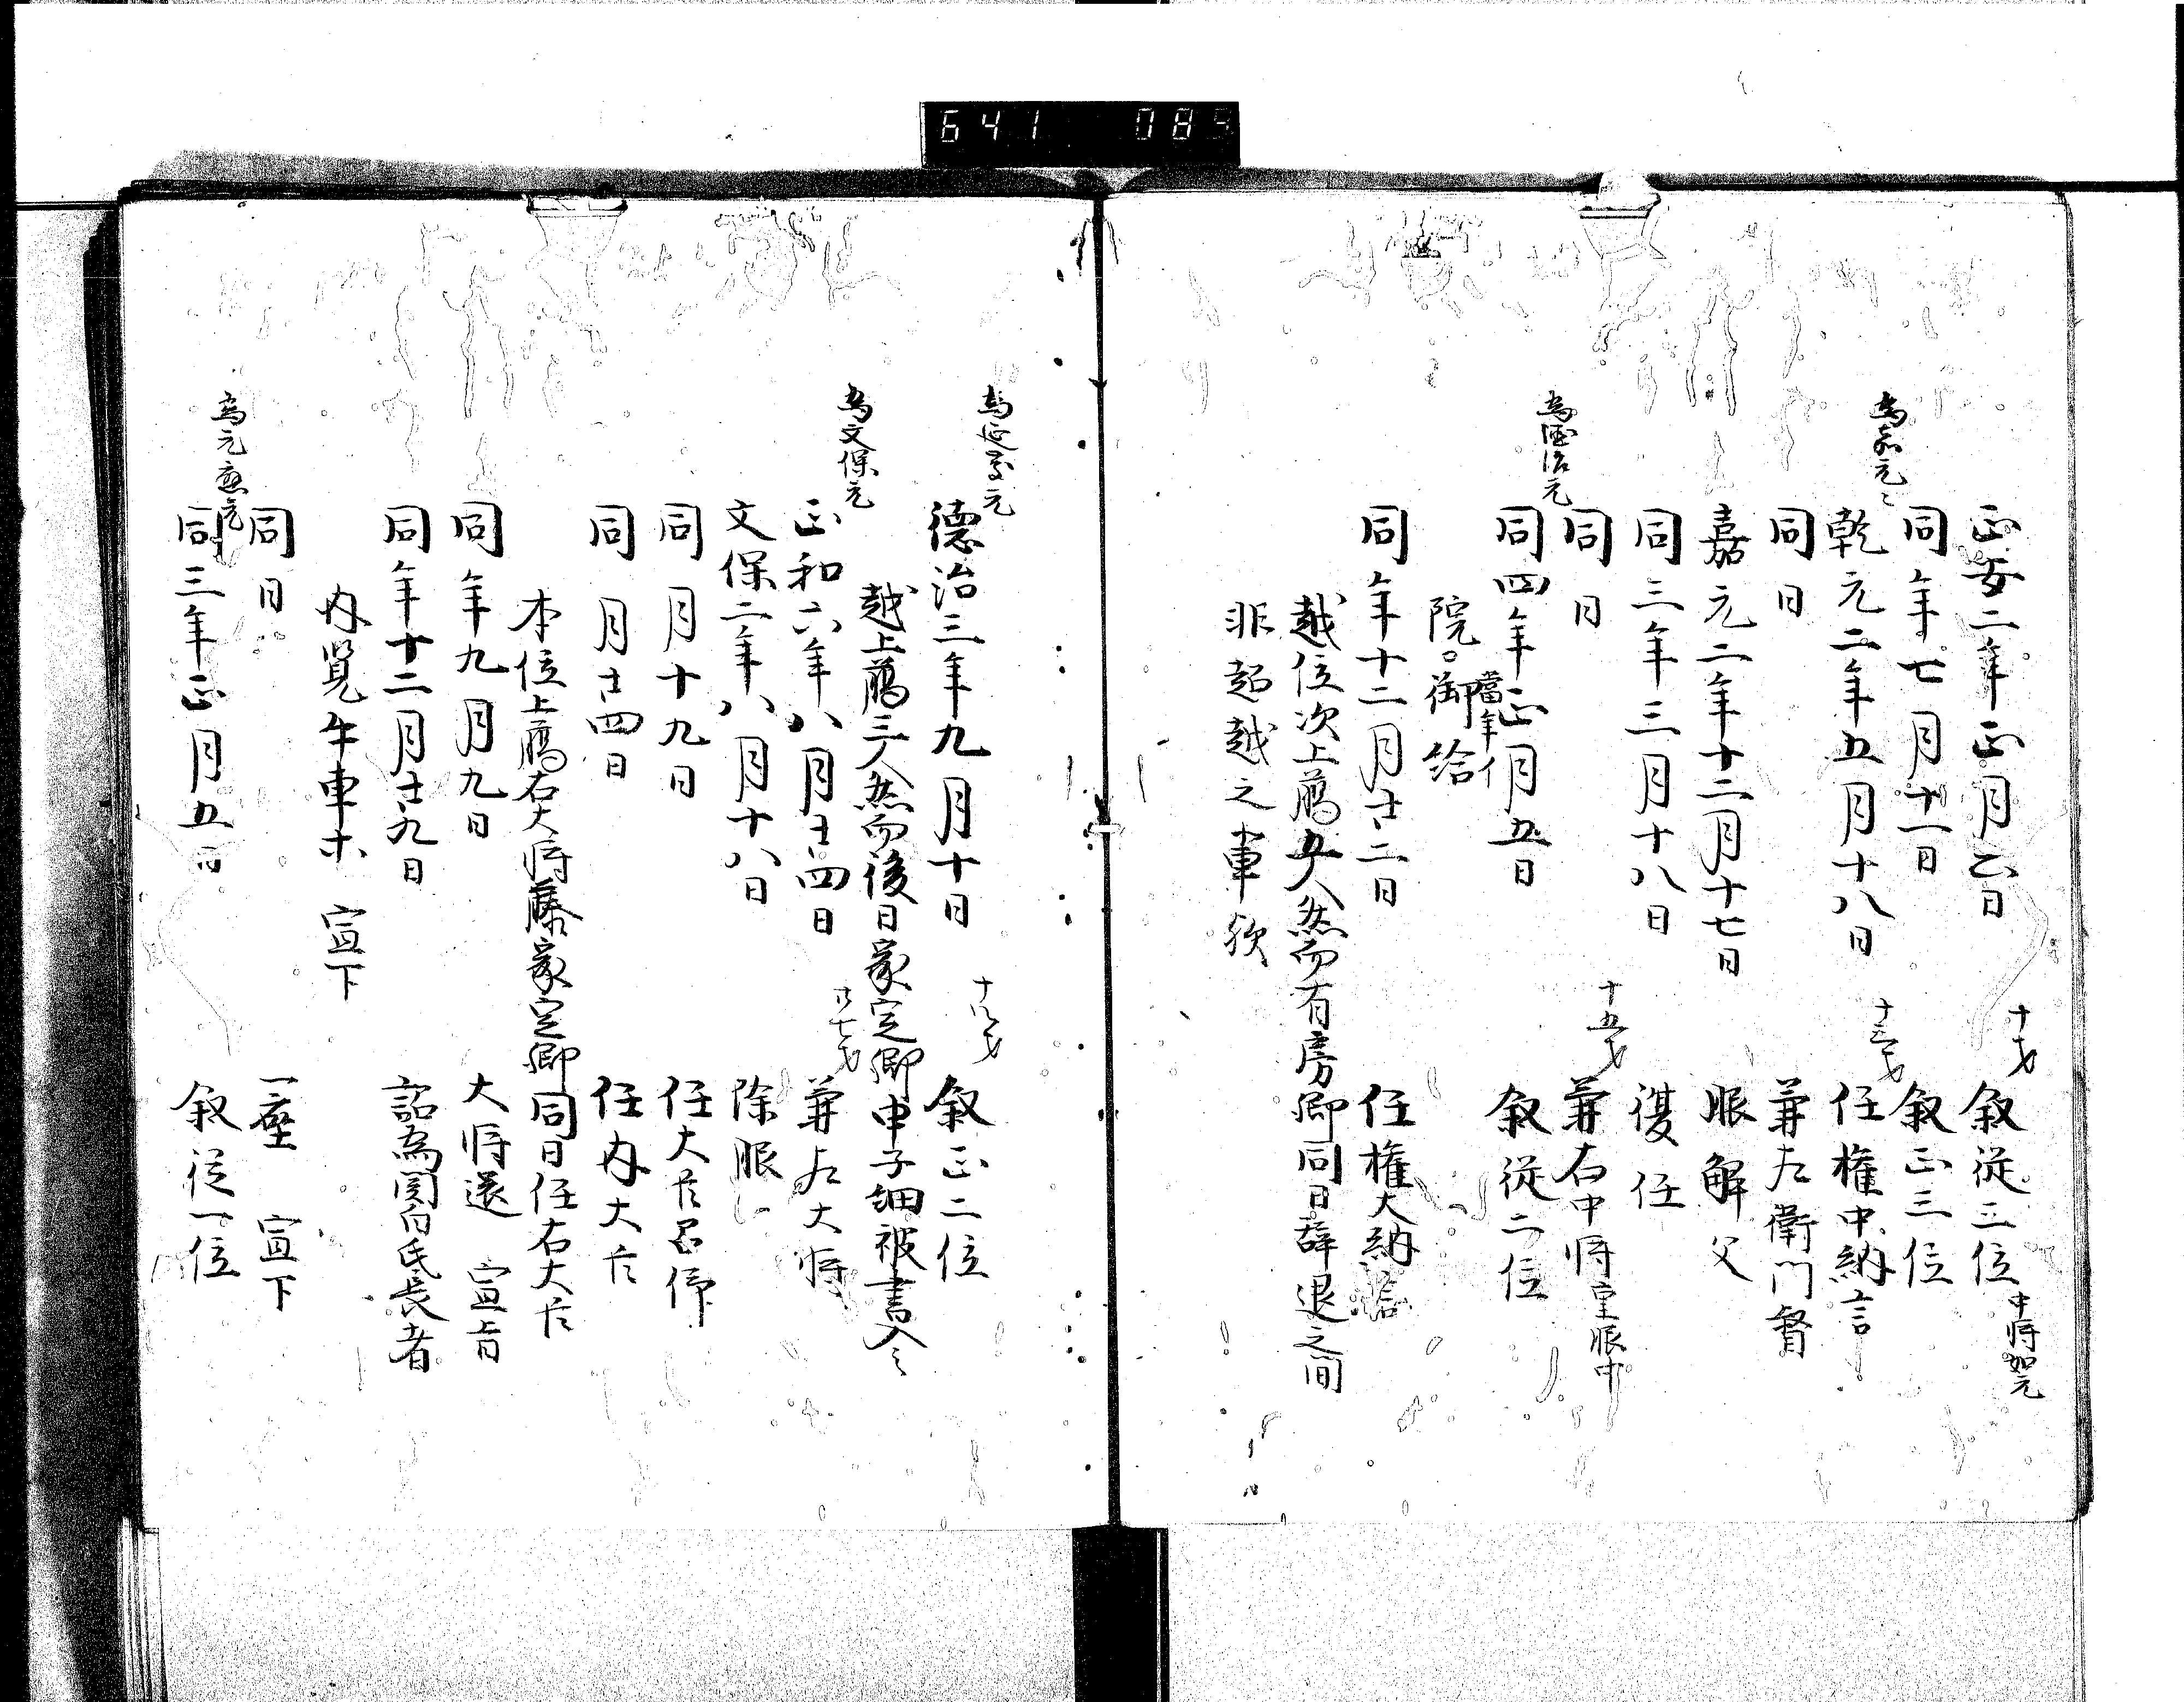 641 085
正安二年正月七日 十才 叙従三位 中将如元
同年七月十一日 叙正三位
為嘉元々
乾元二年五月十八日 十三才 任権中納言
同日 兼左衛門督
嘉元二年十二月十七日 服解 父
同三年三月十八日 復任
同日 十五才 兼右中将 重服中
為徳治元
同四年正月五日 叙従二位
院。御給 當年
同年十二月廿二日 任権大納言
越位次上臈五人然而有房卿同日辞退之間
非超越之車歟
為延慶元
徳治三年九月十日 十八才 叙正二位
越上臈三人然而後日家定卿申子細被書入々
為文保元
正和六年八月廿四日 廿七才 兼左大将
文保二年八月十八日 除服
同月十九日 任大臣召仰
同月廿四日 任内大臣
本位上臈右大将藤家定卿同日任右大臣
同年九月九日 大将還 宣旨
同年十二月廿九日 詔為関白氏長者
内覧牛車等 宣下
同日 一座 宣下
為元應元
同三年正月五日 叙従一位